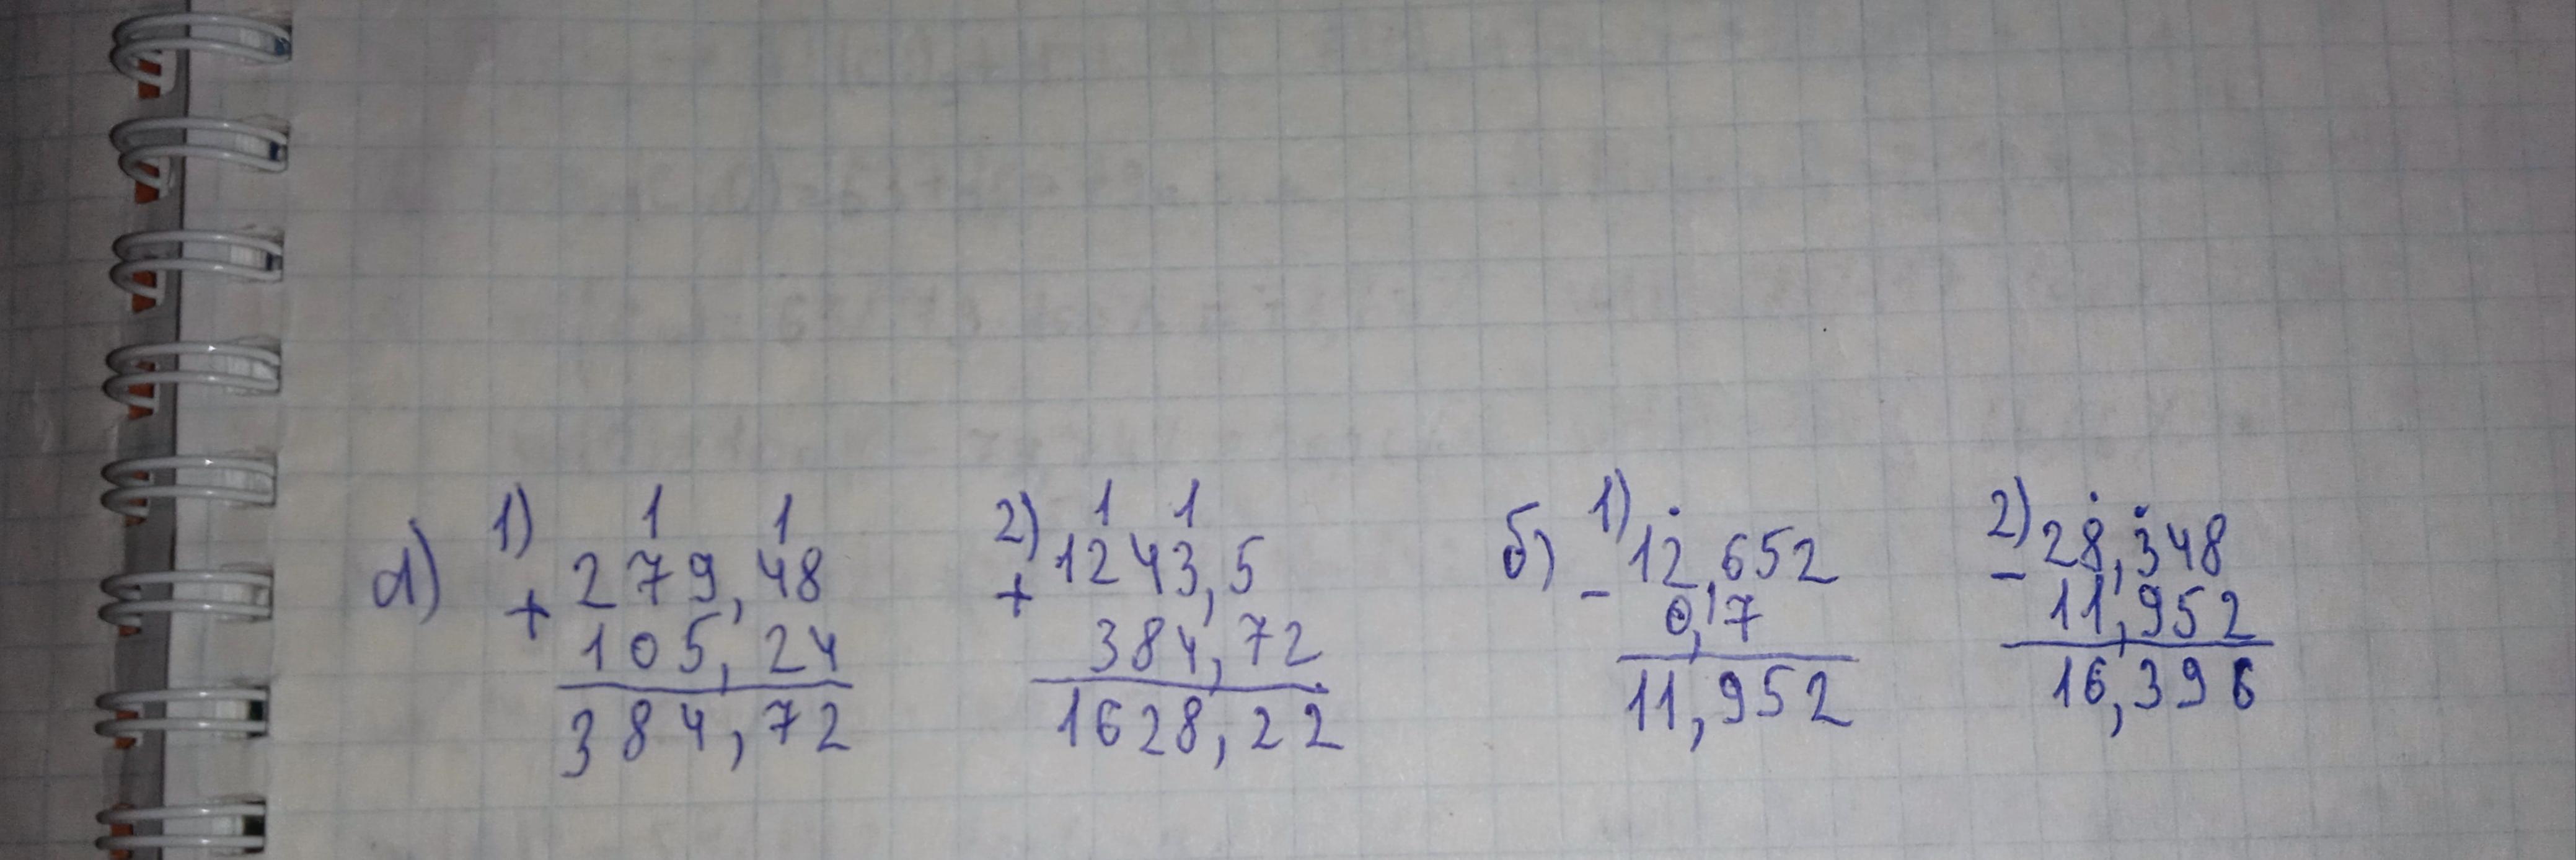 а) 1) 1 1 2) 1 1 б) 1) 2)
+ 279,48 + 1243,5 - 12,652 - 28,348
105,24 384,72 0,7 11,952
384,72 1628,22 11,952 16,396